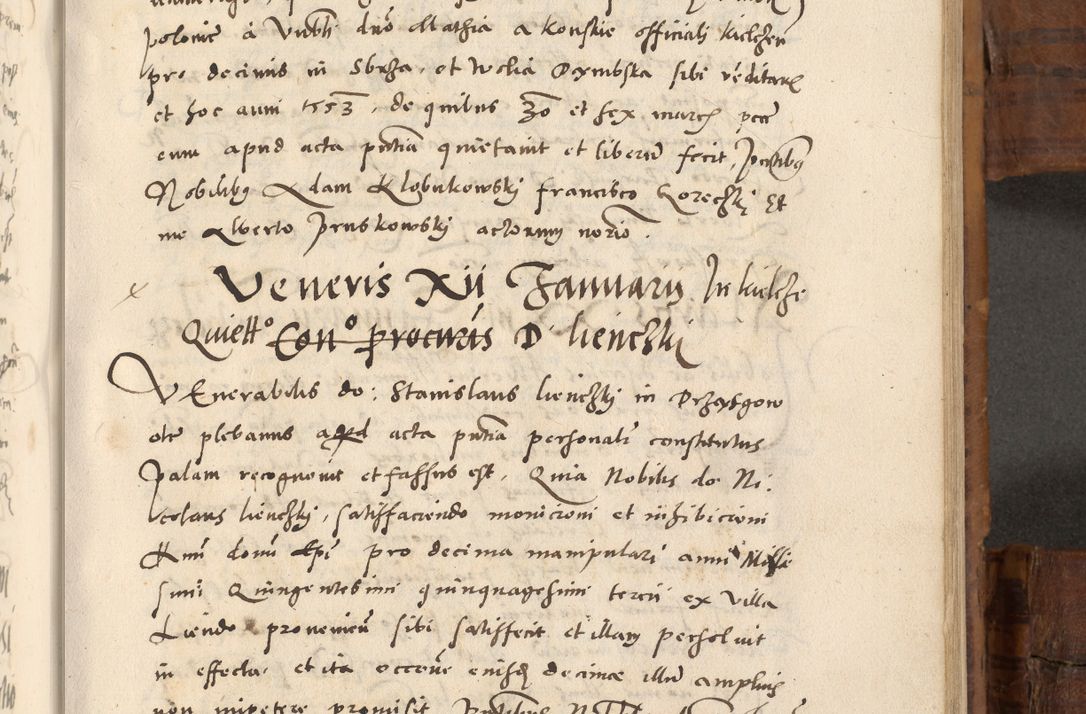 polonie a Vnbli dno Mathia a Konskie officiali kielczen
pro decimis in Sbrza, et Wolia Dembska sibi venditare
et hoc anni 1553, de quibus 30 et sex marcis per
eum apud acta pntia quietavit et liberu fecit, Pntibq
Nobilibq Adam Klobukowskj Francisco Gorechkj Et
me Alberto Pruskowskj actorum norio.
Veneris XII Januarij In kielcze
Quiettº Conº procuris D lienchkj
VEnerabilis do: Stanislaus lienchkj in Drzasgow
ole plebanus apd acta pntia personali constitutus
Palam recognovit et fassus est, Quia Nobilis do Ni:
colaus lienchkj, satisfaciendo monicioni et inhibicioni
Rmi domi Epi pro decima manipulari anni Mille
simi Quingentesimi quinquagesimi tercii ex Villa
Liendo provenien sibi satisfecit et illam persolvit
in effectu, et ita occone eiusd decimae illum amplius
non impetere promisit